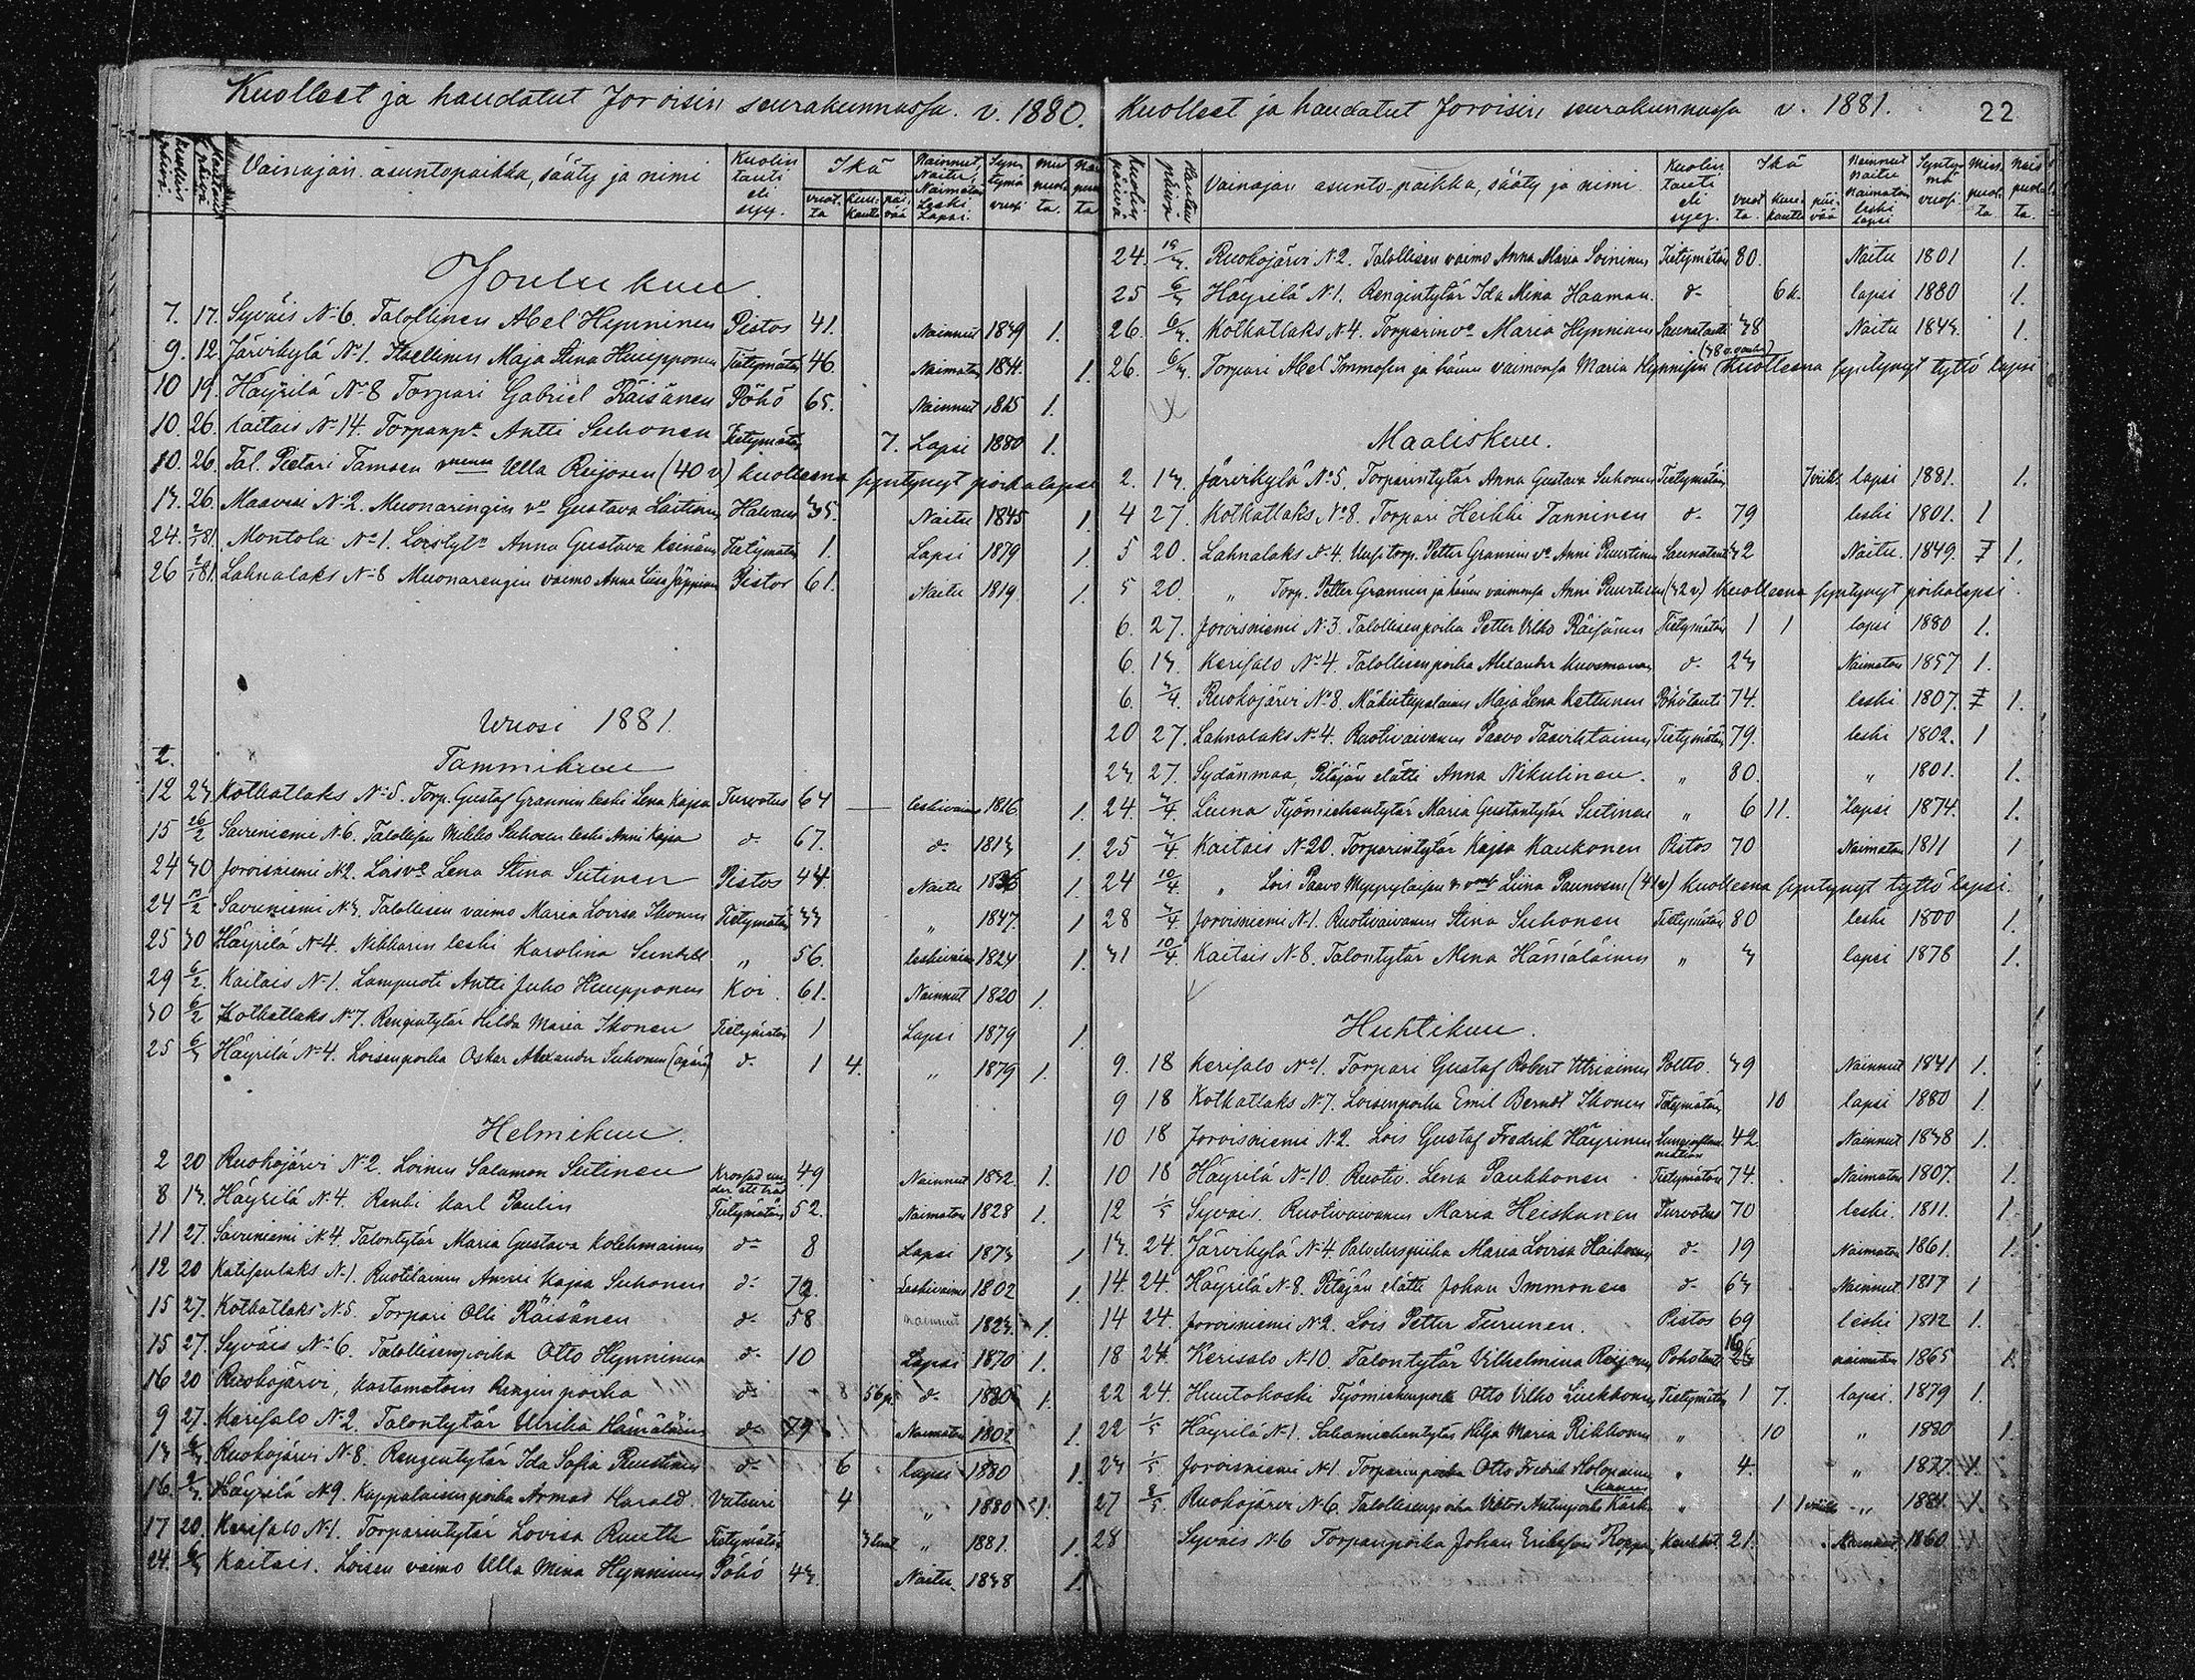 Kuolleet ja haudatut Joroisin seurakunnassa. v. 1880.
Vainajan asuntopaikka, sääty ja nimi Kuolin tauti eli syy. Ikä vuot. ta kuu- kautta päi- vää Nainnut, Naitu, Naimaton Leski Lapsi. Syn- tymä vuosi
Joulukuu.
7. 17. Syväis No 6. Talollinen Abel Hynninen Pistos 41. Nainnut 1839 1.
9. 12. Järvikylä No 1. Itsellinen Maja Stina Huupponen Tietymätön 46. Naimaton 1834. 1.
10 19. Häyrilä No 8 Torpari Gabriel Räisänen Pöhö 65. Nainnut 1815 1.
10. 26. Kaitais No 14. Torparip. Antti Suhonen Tietymätön 7. Lapsi 1880 1.
10. 26. Tal. Pietari Tamsen Ulla Reijosen (40 v) kuolleena syntynyt poikalapsi
13. 26. Maavesi No 2. Muonaringin vo Gustava Laitinen Halvaus 35. Naitu 1845 1.
24. 2/1 81. Montola No 1. Loistyt. Anna Gustava Keinänen Tietymätön 1. Lapsi 1879 1.
26 2/1 81. Lahnalaks No 8 Muonarengin vaimo Anna Liisa Jäppinen Pistos 61. Naitu 1819. 1.
Wuosi 1881.
2.
Tammikuu
12 23. Kotkatlaks No 5. Torp. Gustaf Grannin leski Lena Kajsa Turvotus 64 leskivaimo 1816 1.
15 26/2 Savuniemi N. 6. Talollisen Mikko Suhosen leski Anni Kajsa d- 67. d- 1813 1.
24 30 Joroisniemi N 2. Loisvo Lena Stina Sutinen Pistos 44. Naitu 1836 1.
24 13/2 Savuniemi N. 3. Talollisen vaimo Maria Lovisa Ikonen Tietymätön 33 " 1847. 1
25 30 Häyrilä No 4. Nikkarin leski Karolina Sundell " 56. leskivaimo 1824 1.
29 6/2. Kaitais No 1. Lampuoti Antti Juho Huupponen Koi. 61. Nainnut 1820 1.
30 6/2 Kotkatlaks No 7. Rengintytär Hilda Maria Ikonen Tietymätön 1 Lapsi 1879 1.
25 6/3 Häyrilä No 4. Loisenpoika Oskar Alexander Suhonen (äpärä) d. 1 4. " 1879 1.
Helmikuu.
2 20 Ruokojärvi No 2. Loinen Salamon Sutinen Krossad un- der ett träd 49 Nainnut 1832. 1.
8 13. Häyrilä N. 4. Renki Karl Paulin Tietymätön 52. Naimaton 1828 1.
11 27. Savuniemi N 4. Talontytär Maria Gustava Kolehmainen d- 8 Lapsi 1873 1
12 20 Katisenlaks No 1. Ruotilainen Anni Kajsa Suhonen d- 79. Leskivaimo 1802 1.
15 27. Kotkatlaks N. 5. Torpari Olli Räisänen d. 58 nainnut 1823. 1.
15 27. Syväis No 6. Talollisenpoika Otto Hynninen d- 10 Lapsi 1870 1.
16 20 Ruokojärvi, kastamatoin Rengin poika d- d. 1880 1.
9 27. Kerisalo No 2. Talontytär Ulrika Hämäläinen d- 79 Naimaton 1802 1.
13 6/3 Ruokojärvi N. 8. Rengintytär Ida Sofia Puustinen d- 6 lapsi 1880 1.
16. Häyrilä N 9. Kappalaisen poika Armas Harald. Vatsuri 4 " 1880 1.
17 20. Kerisalo N 1. Torparintytär Lovisa Ruuth Tietymätön " 1881. 1.
24. 6/3 Kaitais. Loisen vaimo Ulla Mina Hynninen Pöhö 43. Naitu 1838 1.
Kuolleet ja haudatut Joroisin seurakunnassa v. 1881. 22
Kuolin päivä Hautau päivä Vainajan asunto-paikka, sääty ja nimi. Kuolin tauti eli syy. Ikä vuot ta. kuu- kautta päi- vää Nainnut naitu naimaton leski lapsi Synty- mä vuosi. Mies puol. ta Nais puol. ta.
24. 19/3. Ruokojärvi N. 2. Talollisen vaimo Anna Maria Soininen Tietymätön 80. Naitu 1801 1.
25 6/3 Häyrilä N 1. Rengintytär Ida Mina Haaman. d- 6 k. lapsi 1880 1.
26. 6/3. Kotkatlaks N 4. Torparinvo Maria Hynninen Saunatauti 38 Naitu 1843. 1.
26. 6/3. Torpari Abel Immosen ja hänen vaimonsa Maria Hynnisen (38 v. vanha) kuolleena syntynyt tyttö lapsi
Maaliskuu.
2. 13. Järvikylä No 5. Torparintytär Anna Gustava Suhonen Tietymätön lapsi 1881. 1.
4 27. Kotkatlaks No 8. Torpari Heikki Tanninen d. 79 leski 1801. 1
5 20. Lahnalaks N. 4. Uusitorp. Petter Grannin vo Anni Puurtinen Saunatauti 32 Naitu. 1849. 1.
5 20. " Torp. Petter Grannin ja hänen vaimonsa Anni Puurtisen (32 v) kuolleena syntynyt poikalapsi.
6. 27. Joroisniemi N. 3. Talollisenpoika Petter Vilho Räisänen Tietymätön 1 1 lapsi 1880 1.
6. 13. Kerisalo No 4. Talollisenpoika Alexander Kuosmanen d. 23 Naimaton 1857 1.
6. 3/4. Ruokojärvi No 8. Mäkitupalainen Maja Lena Kettunen Pöhötauti 74. leski 1807. 1.
20 27. Lahnalaks No 4. Ruotivaivanen Paavo Taavitsainen Tietymätön 79. leski 1802. 1
23. 27. Sydänmaa, Pitäjän elätti Anna Nikulinen. " 80. " 1801. 1.
24. 3/4. Liuna Työmiehentytär Maria Gustantytär Sutinen " 6 11. lapsi 1874. 1.
25 3/4. Kaitais N 20. Torparintytär Kajsa Kaukonen Pistos 70 Naimaton 1811 1
24 10/4. " Lois Paavo Myyryläisen Liina Paunosen (41 v) kuolleena syntynyt tyttö lapsi.
28 3/4 Joroisniemi N 1. Ruotivaivanen Stina Suhonen Tietymätön 80 leski 1800 1.
31 10/4. Kaitais N. 8. Talontytär Mina Hämäläinen " 3 lapsi 1878 1.
Huhtikuu.
9. 18 Kerisalo No 1. Torpari Gustaf Robert Utriainen Poltto. 39 Nainnut 1841 1.
9 18 Kotkatlaks N. 7. Loisenpoika Emil Berndt Ikonen Tietymätön 10 lapsi 1880 1.
10 18 Joroisniemi N. 2. Lois Gustaf Fredrik Häyrinen Lunginflam- mation 42 Nainnut 1838 1.
10 18 Häyrilä No 10. Ruotiv. Lena Paukkonen Tietymätön 74. Naimaton 1807. 1.
12 1/5 Syväis. Ruotivaivanen Maria Heiskanen Turvotus 70 leski. 1811. 1
13. 24. Järvikylä N. 4. Palveluspiika Maria Lovisa Haikonen d- 19 Naimaton 1861. 1.
14. 24. Häyrilä N. 8. Pitäjän elätti Johan Immonen d- 63 Nainnut 1817 1
14 24. Joroisniemi N. 2. Lois Petter Turunen. Pistos 69 leski 1812 1.
18 24 Kerisalo N 10. Talontytär Vilhelmina Reijonen Pöhötauti 16 naimaton 1865 1.
22 24. Huutokoski Työmiehenpoika Otto Vilho Luukkonen Tietymätön 1 7. lapsi. 1879 1.
22 1/5 Häyrilä N 1. Sahamiehentytär Hilja Maria Rikkonen " 10 " 1880 1.
23 1/5 Joroisniemi N 1. Torparinpoika Otto Fredrik Kolopainen " 4. " 1877. 1.
27 8/5. Ruokojärvi N 6. Talollisenpoika Viktor Antinpoika Kärk- kainen " 1 " 1881. 1.
28 Syväis N 6 Torparipoika Johan Erikson Roppo, 21. 1860